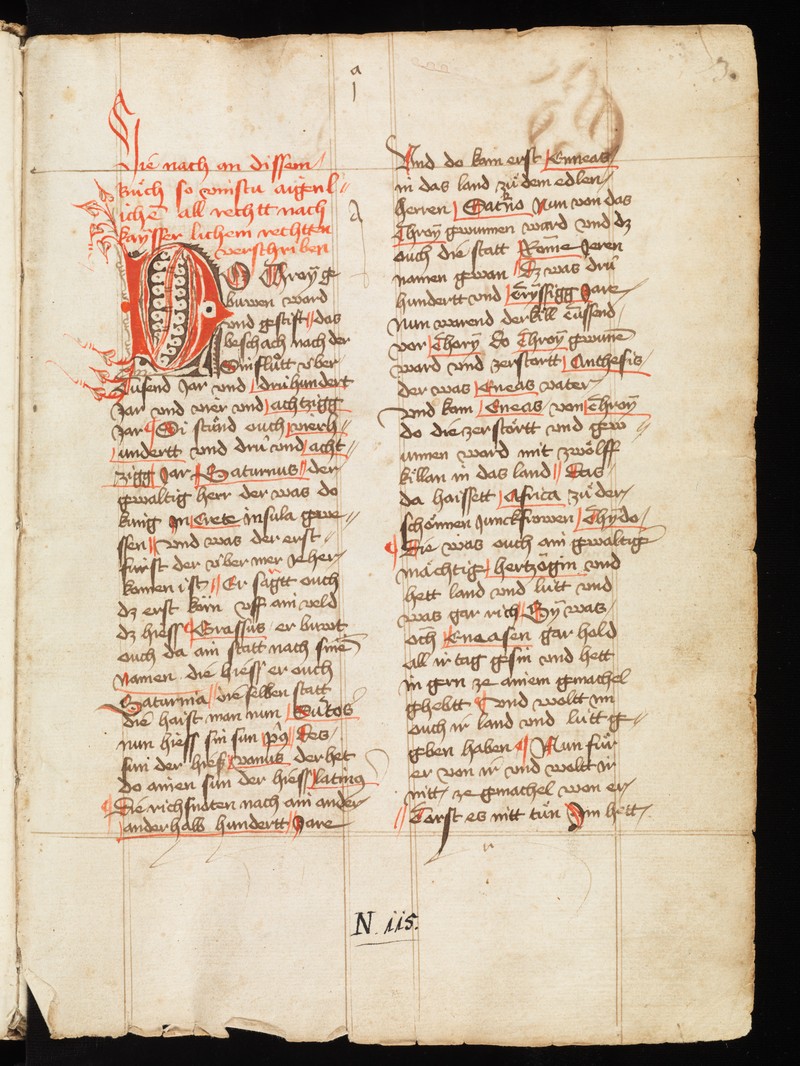 a
3.
Hie nach an dissem
buͦch so vinstu aigenl
ichē all rechtt nach
kaysser lichem rechtten
verschriben
DO Throy ge
buwen ward
vnd gstift das
beschach nach der
Sinfluͦtt vber
Tusend Jar vnd drühundert
Jar vnd vier vnd achtzigg
Jar Si stuͦnd ouch vierh
undertt vnd drü vnd acht
zigg Jar Saturnus der
gewaltig herr der was do
kúnig In Crete insula gewe
ssen vnd was der erst
fúrst der v́ber mer Je her
komen ist Er sagtt ouch
dz erst korn vff ain veld
dz hiess Crassus er buwt
ouch da ain statt nach sinē
namen die hiess er ouch
Saturnia die selben statt
die haist man nun Sutros
nun hiess sin sun pig Des
sun der hiess vanus der het
do ainen sun der hiess latinus
Die richsnoten nach ain ander
anderhalb hundertt Jare
Vnd do kam erst Enneas
in das land zuͦ dem edlen
herren Saturno Nun von das
Throy gewunnen ward vnd dz
ouch die statt Rome Jeren
namen gewan Ez was drú
hundertt vnd tryssigg Jare
Nun warend der kúll Tussend
vor Thory do Throy gewunē
ward vnd zerstortt Anthesis
der was Eneas vater
vnd kam Eneas von Throy
do die zerstortt vnd gew
unnen ward mit zwölff
kúllan in das land Das
da haissett Africa zuͦ der
schönnen Junckfrowen Thydo
Die was ouch ain gewaltig
mächtig hertzogin vnd
hett land vnd lútt vnd
was gar rich Sy was
och Eneasen gar hold
all ir tag gesin vnd hett
in gern ze ainem gemachel
ghebtt vnd woltt im
ouch ir land vnd lútt ge
geben haben Nun fuͦr
er von ir vnd wolt ir
nitt ze gemachel won er
Torst es nitt tuͦn Im hett
N. iis.